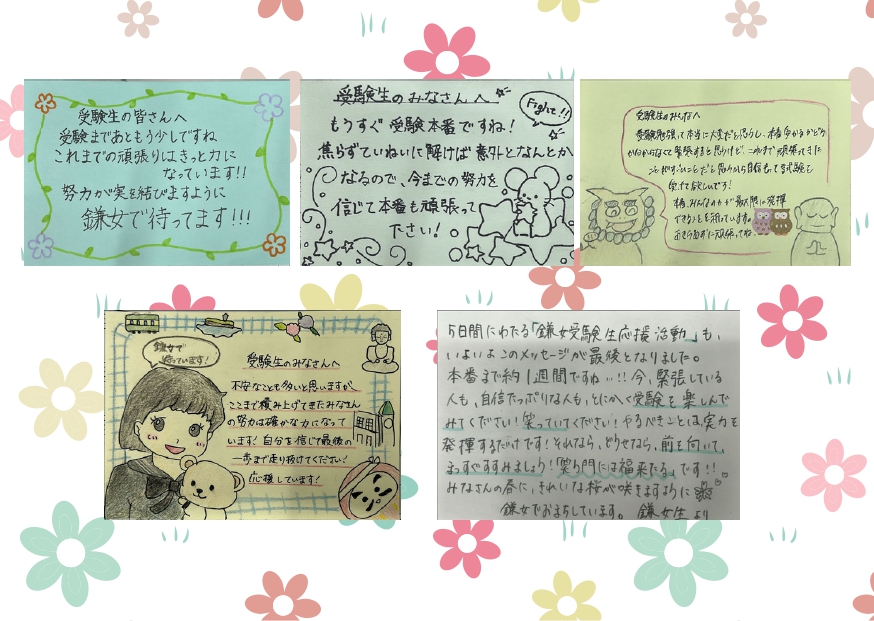 受験生の皆さんへ
受験まであともう少しですね
これまでの頑張りはきっと力に
なっています!!
努力が実を結びますように
鎌女で待ってます!!!
受験生のみなさんへ
Fight!!
もうすぐ受験本番ですね!
焦らずていねいに解けば意外となんとか
なるので、今までの努力を
信じて本番も頑張って
下さい!
受験生のみんなへ
受験勉強って本当に大変だと思うし、本番
緊張すると思うけど、これまで頑張ってきた
自信もって当試験を
受けて欲しいです!
皆、みんなの力が最大限に発揮
できることを祈っています。
あきらめずに頑張ってね
鎌女で
待っています!
受験生のみなさんへ
不安なことも多いと思いますが、
ここまで積み上げてきたみなさん
の努力は確かな力になって
います!自分を信じて最後の
一歩まで走り抜けてください!
応援しています!
5日間にわたる「鎌女受験生応援活動」も、
いよいよこのメッセージが最後となりました。
本番まで約1週間ですね…!!今、緊張している
人も、自信たっぷりな人も、とにかく受験を楽しんで
みてください!笑っていてください!やるべきことは、実力を
発揮するだけです!それなら、どうせなら、前を向いて、
まっすぐすすみましょう!「笑う門には福来たる」です!!
みなさんの春に、きれいな桜が咲きますように
鎌女でおまちしています。 鎌女生より